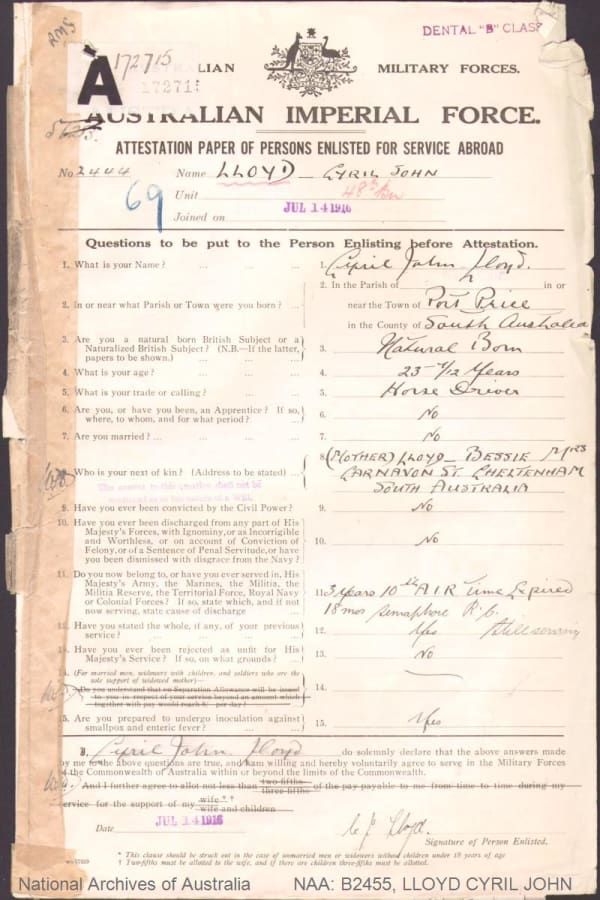 DENTAL "B" CLASS
A 172715
172715
MILITARY FORCES.
AUSTRALIAN IMPERIAL FORCE.
ATTESTATION PAPER OF PERSONS ENLISTED FOR SERVICE ABROAD
No 2444 Name LLOYD CYRIL JOHN
69
Unit 48th Bn
Joined on JUL 14 1916
Questions to be put to the Person Enlisting before Attestation.
1. What is your Name? ... ... ... 1. Cyril John Lloyd.
2. In or near what Parish or Town were you born? ... 2. In the Parish of in or
near the Town of Port Pirie
in the County of South Australia
3. Are you a natural born British Subject or a
Naturalized British Subject? (N.B.—If the latter,
papers to be shown.) ... ... ... 3. Natural Born
4. What is your age? ... ... ... 4. 23 Years
5. What is your trade or calling? ... ... ... 5. Horse Driver
6. Are you, or have you been, an Apprentice? If so,
where, to whom, and for what period? ... 6. No
7. Are you married? ... ... ... 7. No
Who is your next of kin? (Address to be stated) ... 8. (MOTHER) LLOYD - BESSIE MRS
CARNAVON ST. CHELTENHAM
SOUTH AUSTRALIA
9. Have you ever been convicted by the Civil Power? 9. No
10. Have you ever been discharged from any part of His
Majesty's Forces, with Ignominy, or as Incorrigible
and Worthless, or on account of Conviction of
Felony, or of a Sentence of Penal Servitude, or have
you been dismissed with disgrace from the Navy? 10. No
11. Do you now belong to, or have you ever served in, His
Majesty's Army, the Marines, the Militia, the
Militia Reserve, the Territorial Force, Royal Navy
or Colonial Forces? If so, state which, and if not
now serving, state cause of discharge 11. 3 Years 10th AIR Time Expired
18 mos Semaphore R.C.
Still serving
12. Have you stated the whole, if any, of your previous
service? ... ... ... 12. Yes
Have you ever been rejected as unfit for His
Majesty's Service? If so, on what grounds? ... 13. No
(For married men, widowers with children, and soldiers who are the
sole support of widowed mother)—
Do you understand that no Separation Allowance will be issued
to you in respect of your service beyond an amount which
together with pay would reach 8/- per day? 14.
15. Are you prepared to undergo inoculation against
smallpox and enteric fever? ... 15. Yes
I, Cyril John Lloyd do solemnly declare that the above answers made
by me to the above questions are true, and I am willing and hereby voluntarily agree to serve in the Military Forces
of the Commonwealth of Australia within or beyond the limits of the Commonwealth.
And I further agree to allot not less than two-fifths three-fifths of the pay payable to me from time to time during my
service for the support of my wife * † wife and children
Date JUL 14 1916
C J Lloyd.
Signature of Person Enlisted.
* This clause should be struck out in the case of unmarried men or widowers without children under 18 years of age
† Two-fifths must be allotted to the wife, and if there are children three-fifths must be allotted.
National Archives of Australia NAA: B2455, LLOYD CYRIL JOHN